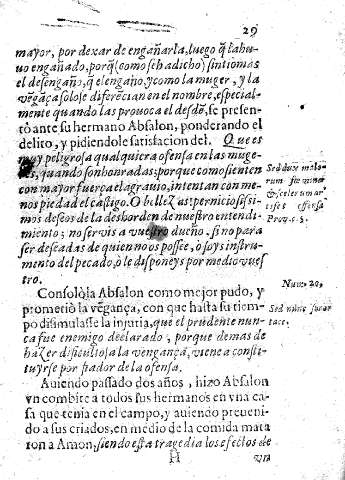 29
mayor, por dexar de engañarla, luego q̃ la hu-
uo engañado, porq̃ (como se ha dicho) sintio mas
el desengaño, q̃ el engaño, y como la muger, y la
vẽgãça solo se diferẽcian en el nombre, especial-
mente quando las prouoca el desdẽ, se presen-
tò ante su hermano Absalon, ponderando el
delito, y pidiendole satisfacion del. Que es
muy peligrosa qualquiera ofensa en las muge-
res, quando son honradas; porque como sienten
con mayor fuerça el agrauio, intentan con me-
nos piedad el castigo. O bellezas! perniciosissi-
mos deseos de la desborden de nuestro entendi-
miento; no seruis a vuestro dueño, sino para
ser deseadas de quien no os possee, ò soys instru-
mento del pecado, ò le disponeys por medio vues
tro.
Sed dux malo-
rum fœmina
& scelerum ar-
tifex
Prov. c. 5.
Consolòla Absalon como mejor pudo, y
prometiò la vẽgança, con que hasta su tiem-
po disimulasse la injuria, que el prudente nun-
ca fue enemigo declarado, porque demas de
hazer dificultosa la vengança, viene a consti-
tuyrse por fiador de la ofensa.
Num. 20,
Auiendo passado dos años, hizo Absalon
vn combite a todos sus hermanos en vna ca-
sa que tenia en el campo, y auiendo preueni-
do a sus criados, en medio de la comida mata
ron a Amon, siendo esta tragedia los efectos de
H
vn